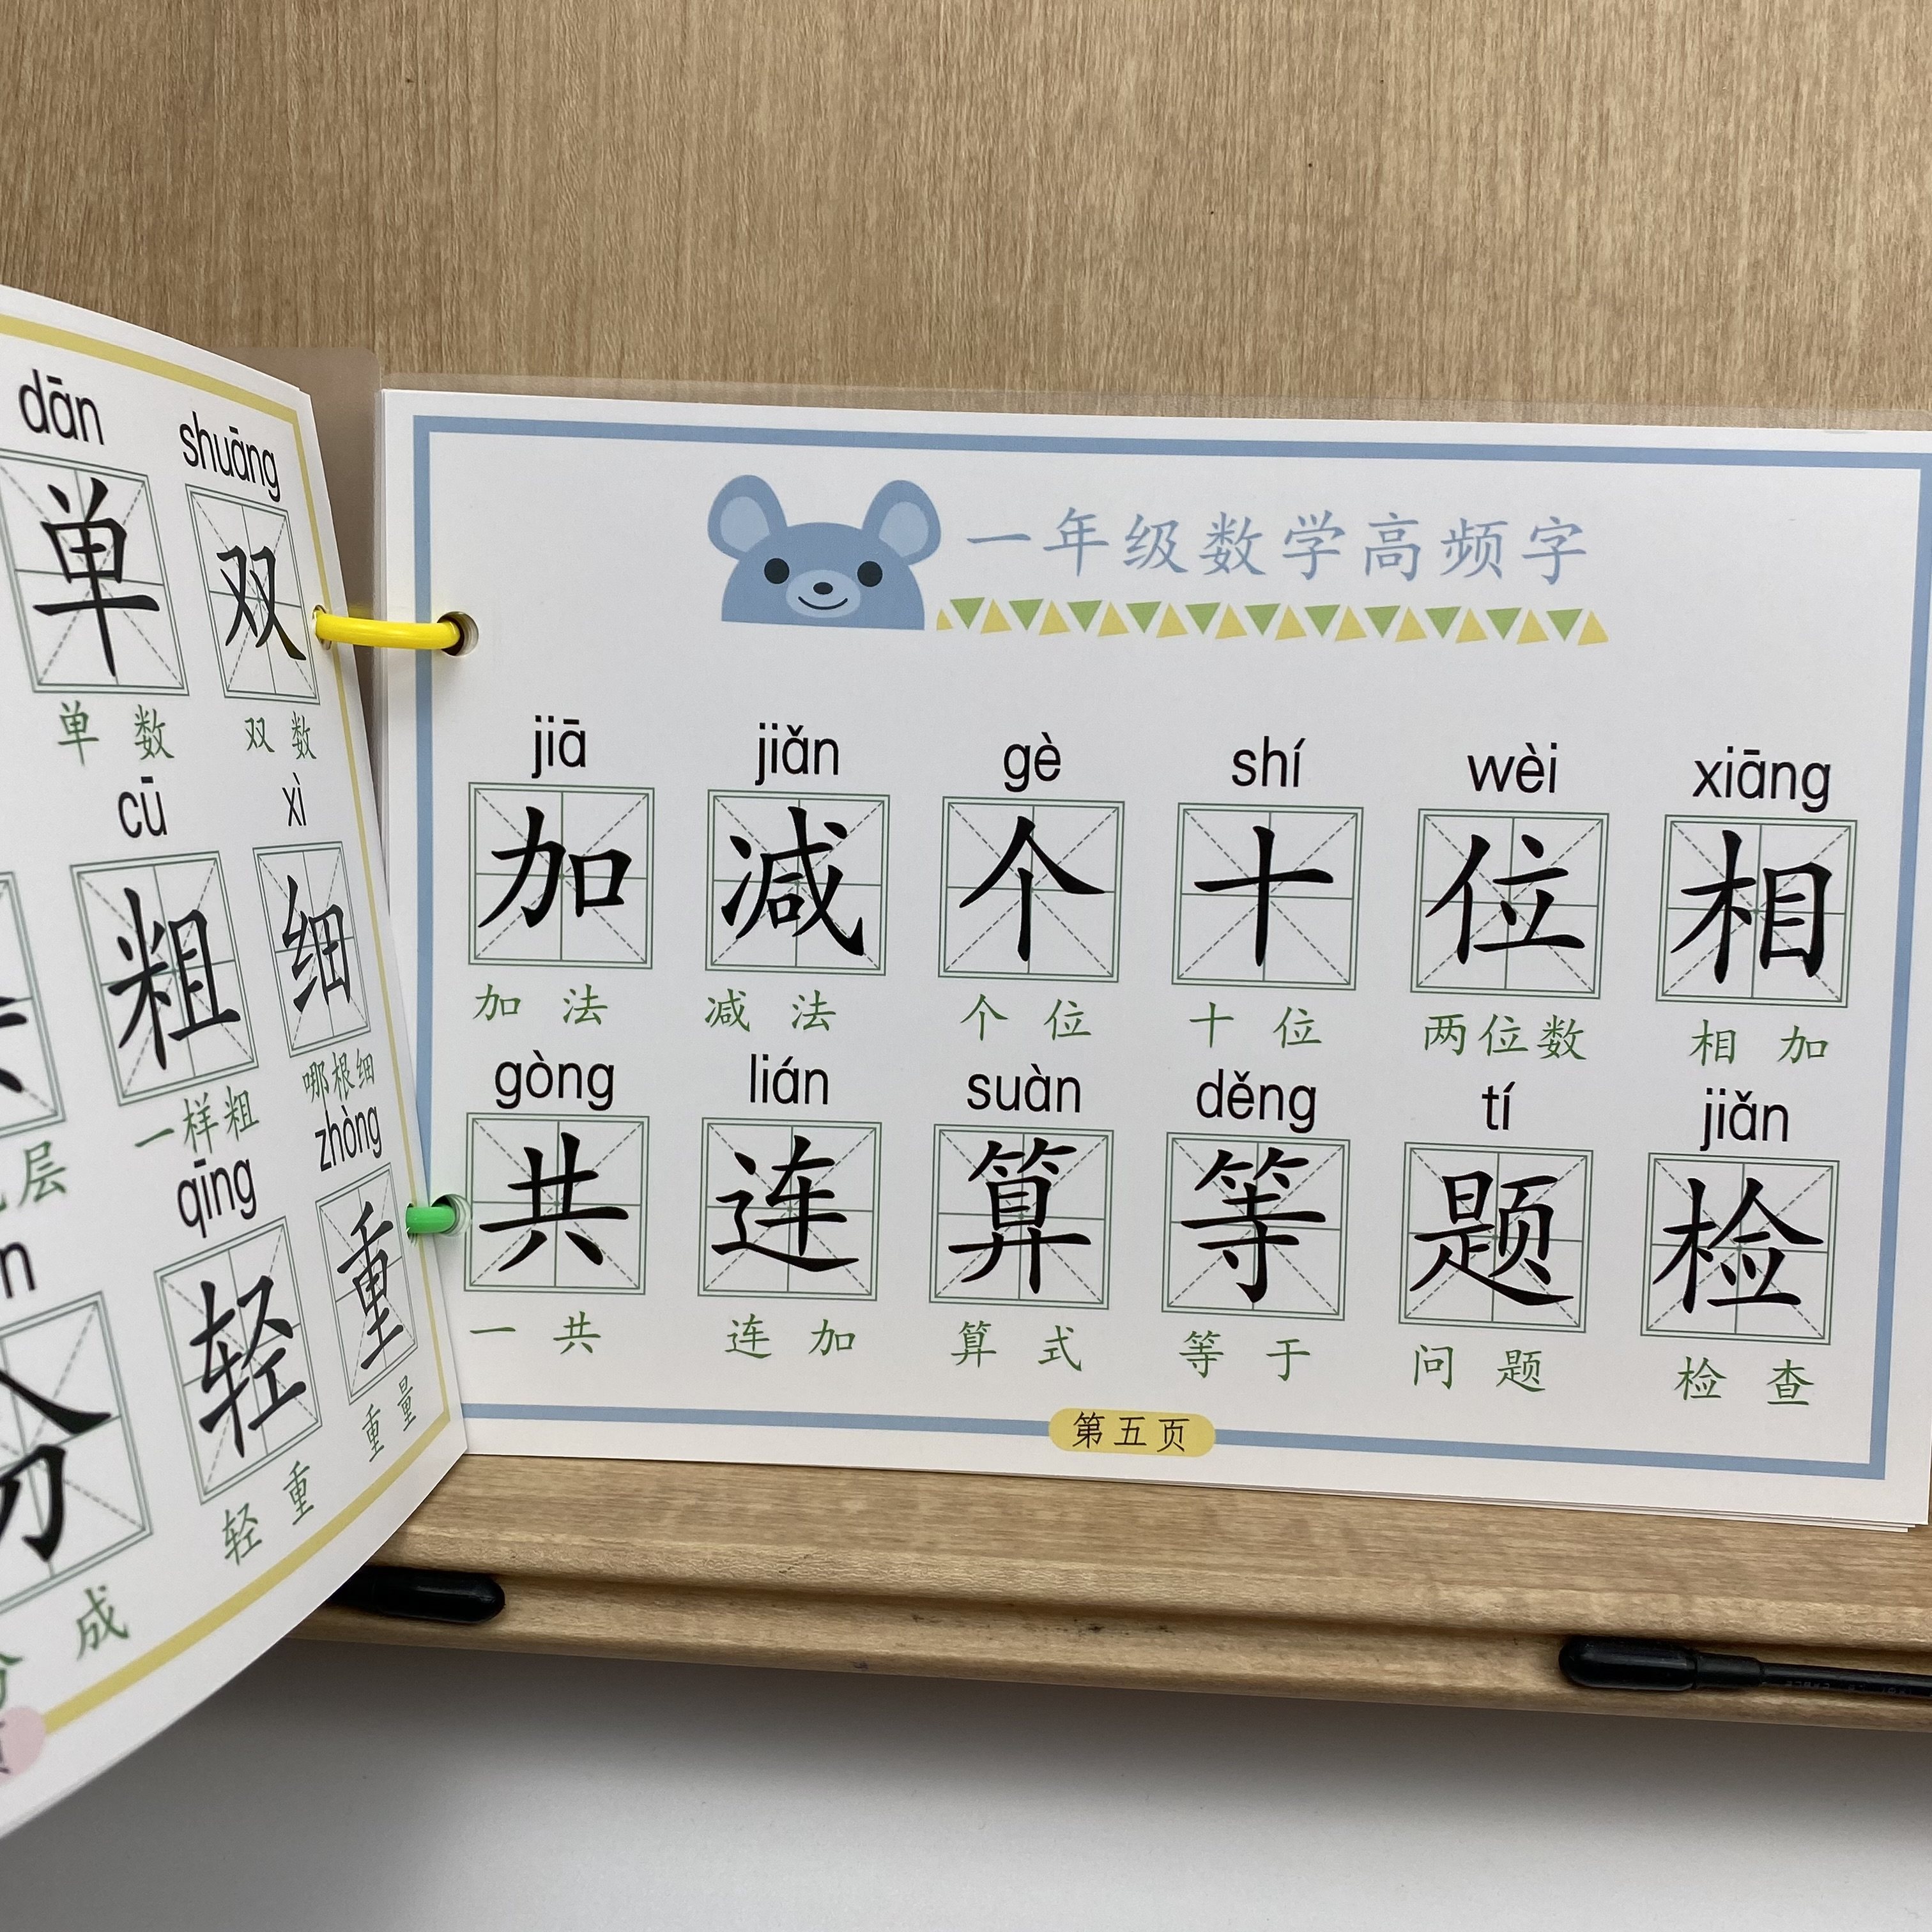 dān shuāng
单 双
单数 双数
cū xì
粗 细
层 一样粗 哪根细
qīng zhòng
分 轻 重
成 轻重 重量
一年级数学高频字
jiā jiǎn gè shí wèi xiāng
加 减 个 十 位 相
加法 减法 个位 十位 两位数 相加
gòng lián suàn děng tí jiǎn
共 连 算 等 题 检
一共 连加 算式 等于 问题 检查
第五页